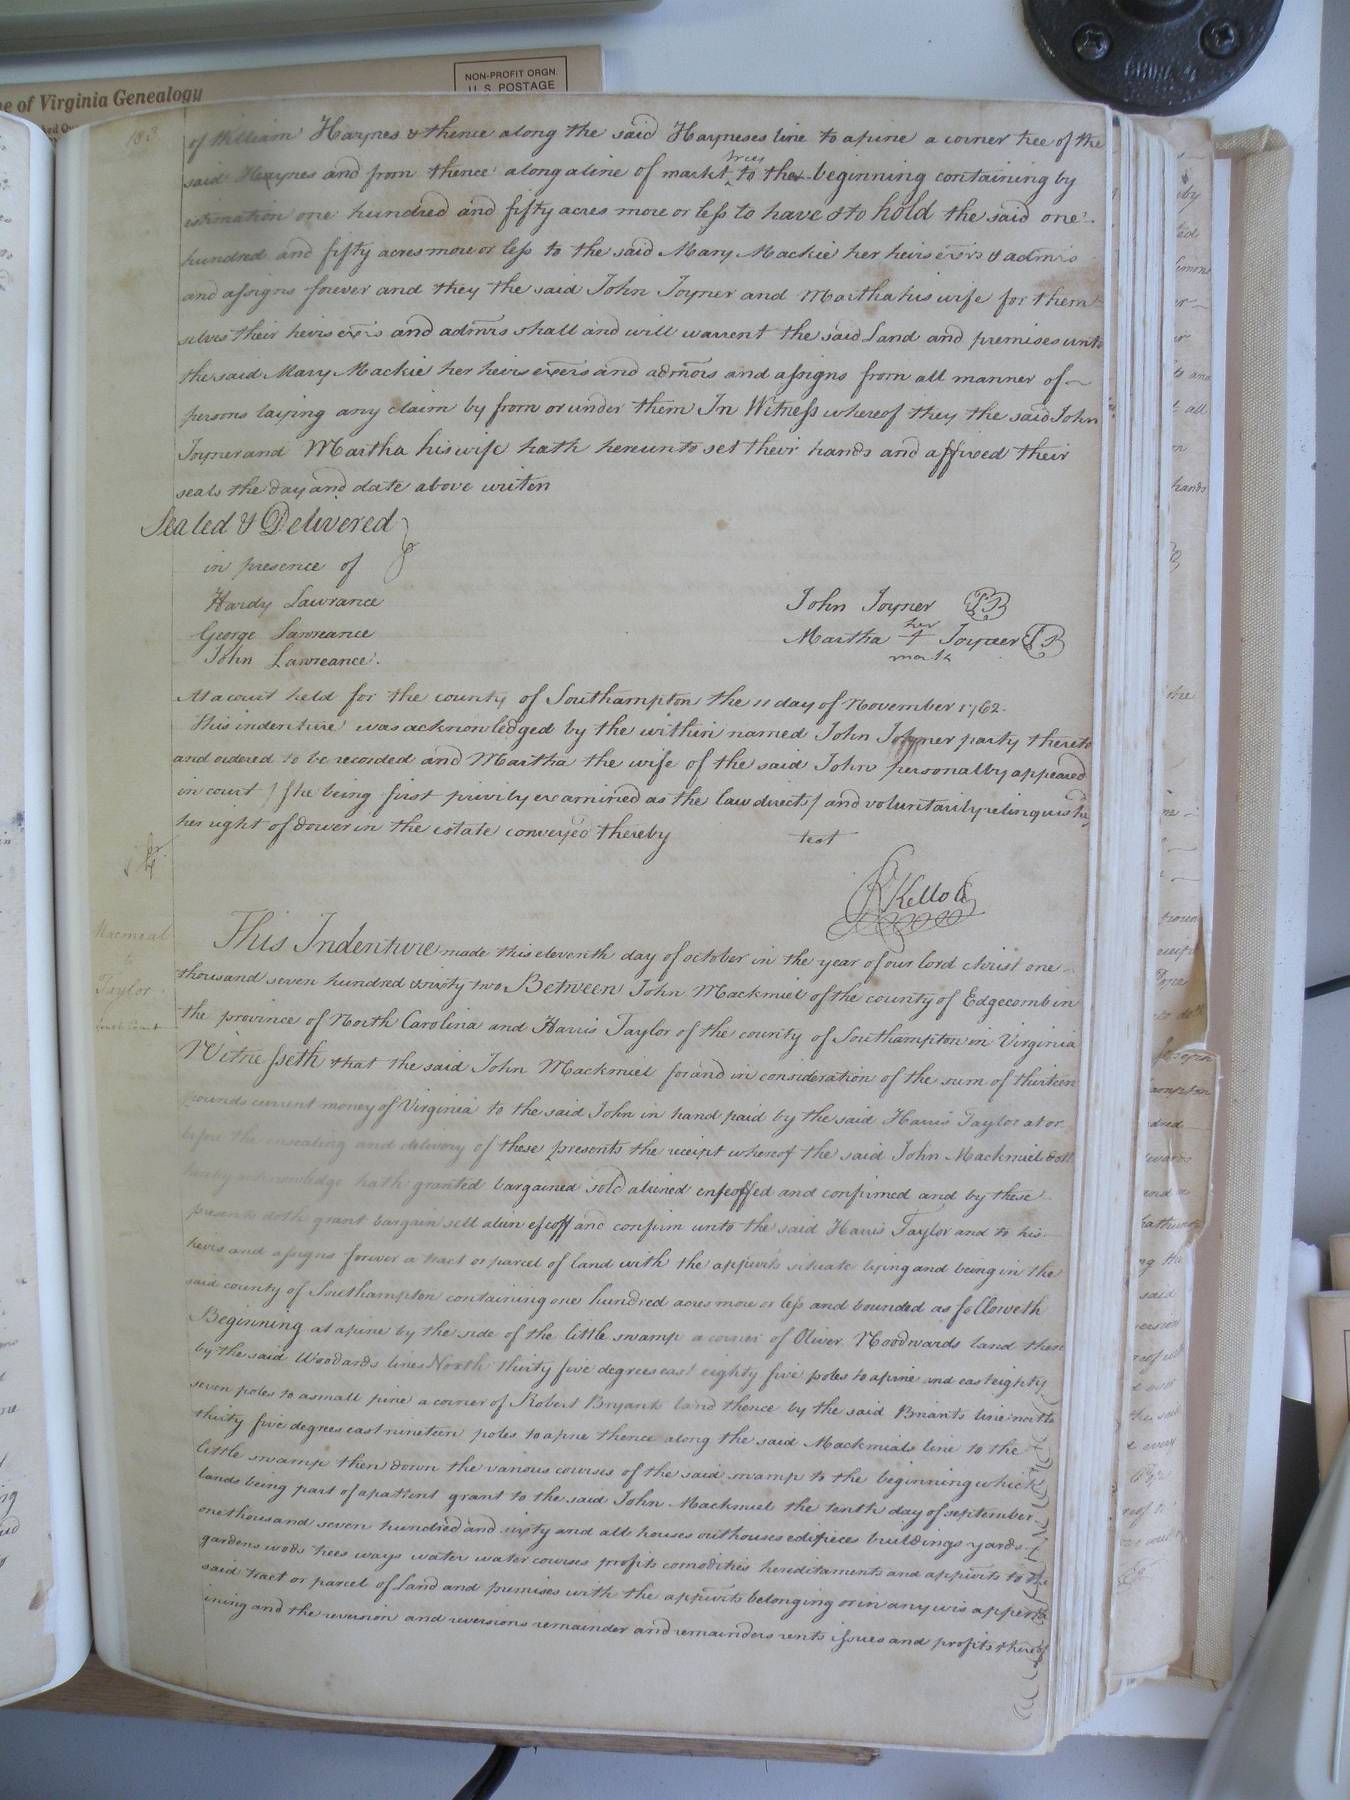 e of Virginia Genealogy
NON-PROFIT ORGN.
U.S. POSTAGE
183
of William Haynes & thence along the said Hayneses line to a pine a corner tree of the
said Haynes and from thence along a line of markt trees to the beginning containing by
estimation one hundred and fifty acres more or less to have & to hold the said one
hundred and fifty acres more or less to the said Mary Mackie her heirs exrs & admrs
and assigns forever and they the said John Joyner and Martha his wife for them
selves their heirs exrs and admrs shall and will warrent the said Land and premises unto
the said Mary Mackie her heirs exers and admors and assigns from all manner of
persons laying any claim by from or under them In Witness whereof they the said John
Joyner and Martha his wife hath hereunto set their hands and affixed their
seals the day and date above writen
Sealed & Delivered
in presence of
Hardy Lawrance
George Lawreance
John Lawreance.
John Joyner
Martha her + mark Joyner
At a court held for the county of Southampton the 11 day of November 1762.
This indenture was acknowledged by the within named John Joyner party thereto
and ordered to be recorded and Martha the wife of the said John personally appeared
in court (she being first privily examined as the law direct) and voluntarily relinquish
her right of dower in the estate conveyed thereby
test
R Kello
Macmial
to
Taylor
This Indenture made this eleventh day of october in the year of our lord christ one
thousand seven hundred & sixty two Between John Mackmiel of the county of Edgecomb in
the province of North Carolina and Harris Taylor of the county of Southampton in Virginia
Witnesseth that the said John Mackmiel for and in consideration of the sum of thirteen
pounds current money of Virginia to the said John in hand paid by the said Harris Taylor at or
before the ensealing and delivery of these presents the receipt whereof the said John Mackmiel doth
hereby acknowledge hath granted bargained sold aliened enfeoffed and confirmed and by these
presents doth grant bargain sell alien efeoff and confirm unto the said Harris Taylor and to his
heirs and assigns forever a tract or parcel of land with the appurts situate lying and being in the
said county of Southampton containing one hundred acres more or less and bounded as followeth
Beginning at a pine by the side of the little swamp a corner of Oliver Woodwards land thence
by the said Woodards lines North thirty five degrees east eighty five poles to a pine and east eighty
seven poles to a small pine a corner of Robert Bryants land thence by the said Briants line north
thirty five degrees east nineteen poles to a pine thence along the said Mackmials line to the
little swamp then down the various courses of the said swamp to the beginning which
lands being part of a patient grant to the said John Mackmiel the tenth day of september
one thousand seven hundred and sixty and all houses outhouses edifieces buildings yards
gardens woods trees ways water water courses profits comodities hereditaments and appurts to the
said tract or parcel of Land and premises with the appurts belonging or in any wis apperta
ining and the reversion and reversions remainder and remainders rents issues and profits thereof